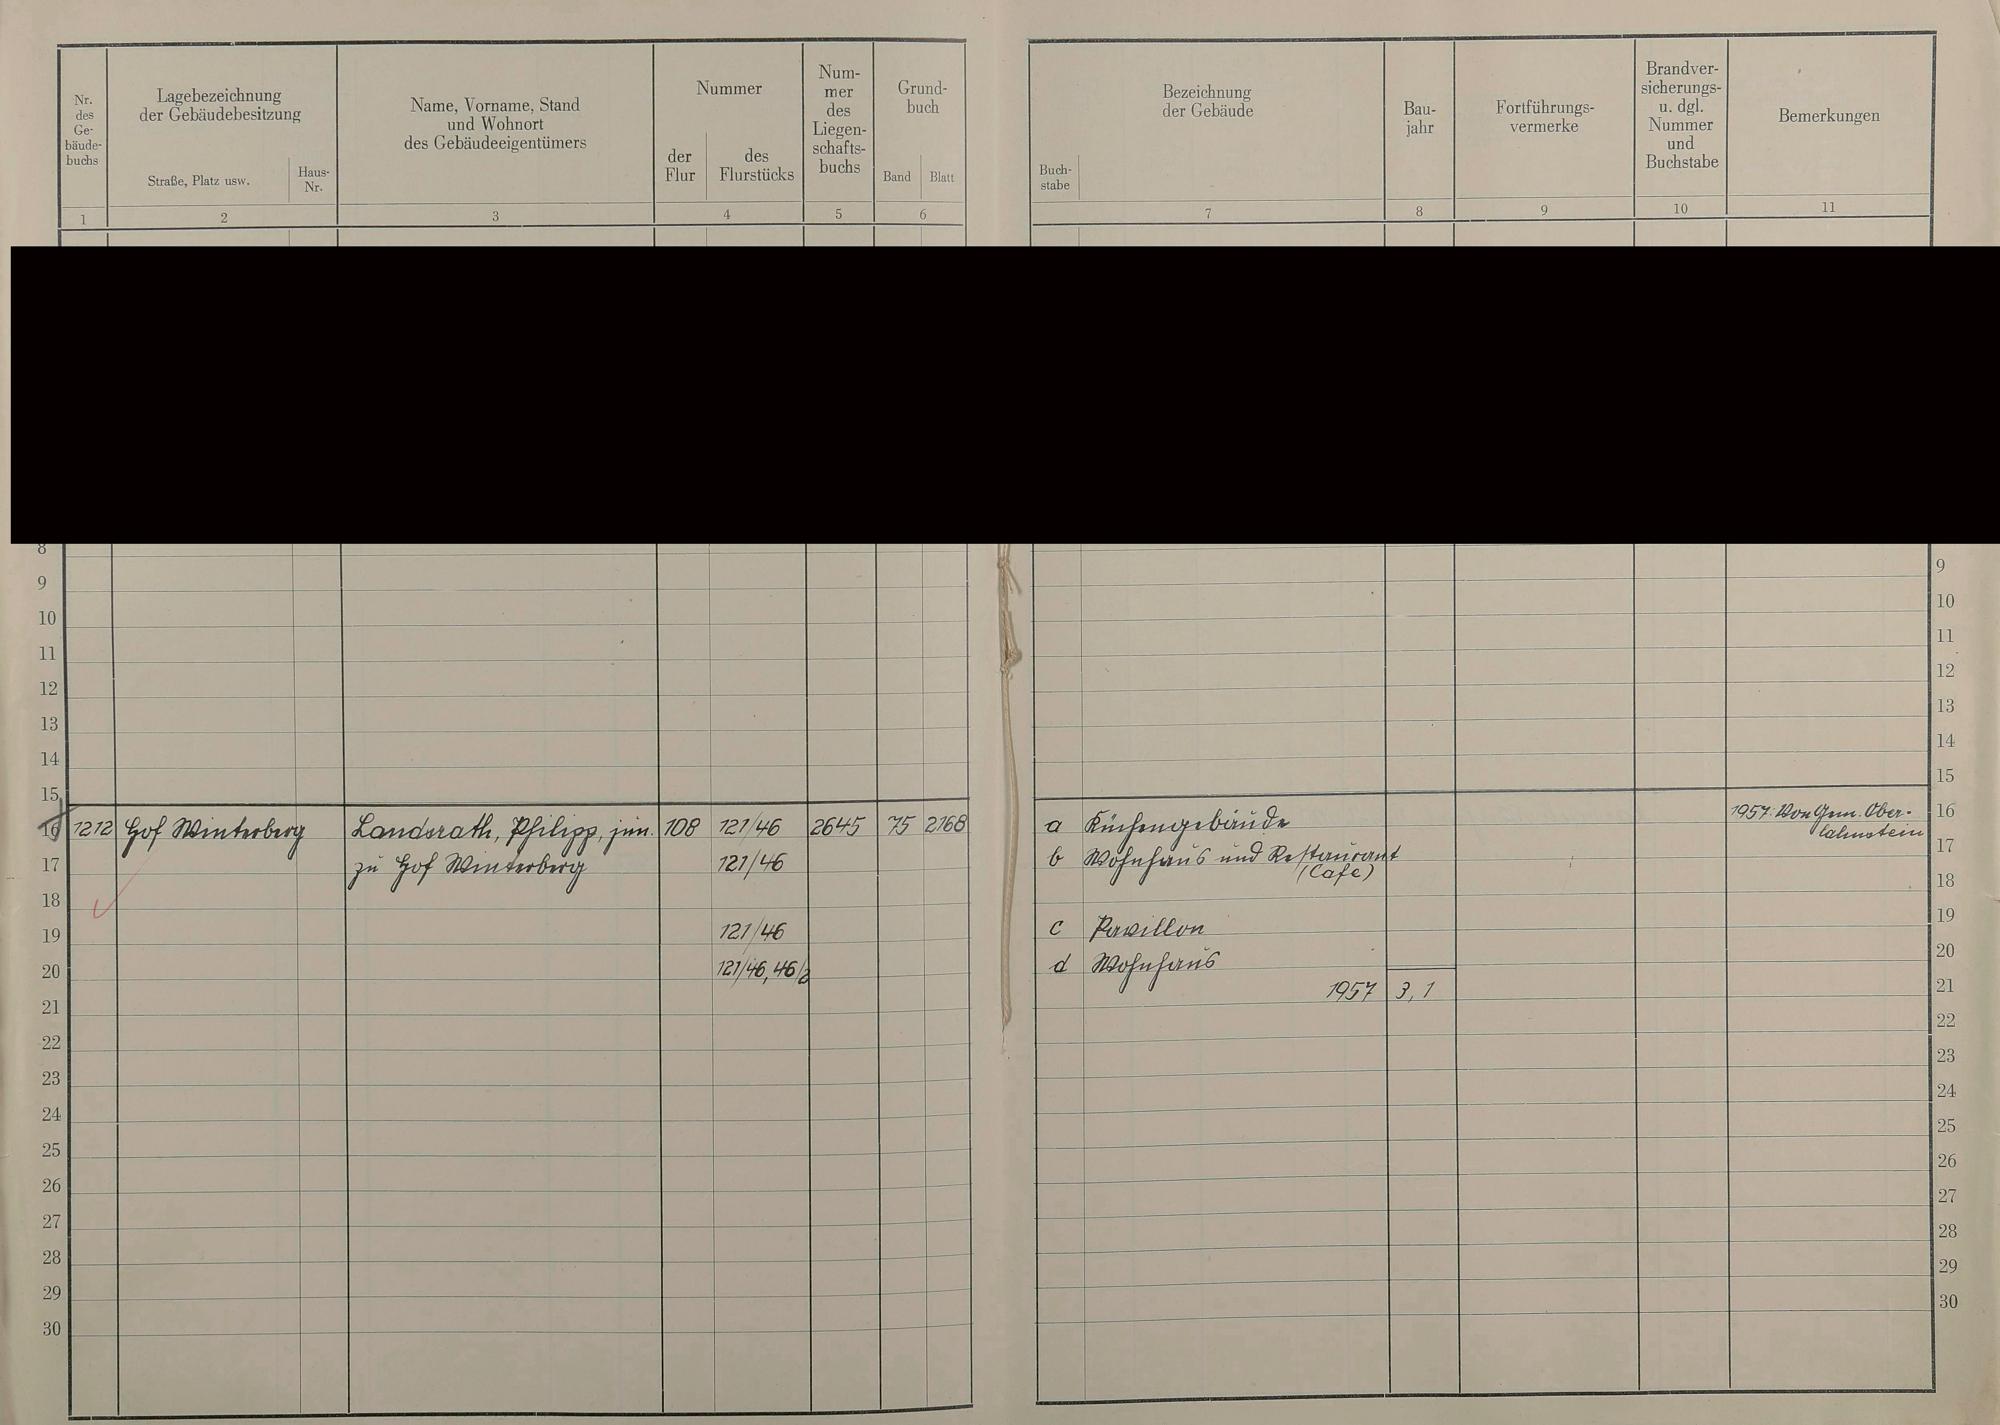 Nr.
des
Ge-
bäude-
buchs
Lagebezeichnung
der Gebäudebesitzung
Straße, Platz usw.
Haus-
Nr.
Name, Vorname, Stand
und Wohnort
des Gebäudeeigentümers
Nummer
der
Flur
des
Flurstücks
Num-
mer
des
Liegen-
schafts-
buchs
Grund-
buch
Band
Blatt
1 2 3 4 5 6
Buch-
stabe
Bezeichnung
der Gebäude
Bau-
jahr
Fortführungs-
vermerke
Brandver-
sicherungs-
u. dgl.
Nummer
und
Buchstabe
Bemerkungen
7 8 9 10 11
8
9
10
11
12
13
14
15
16 1212 Hof Winterberg Landsrath, Philipp, jun. 108 121/46 2645 75 2168
17 zu Hof Winterberg 121/46
18
19 121/46
20 121/46, 46/2
21
22
23
24
25
26
27
28
29
30
9
10
11
12
13
14
15
a Küchengebäude 1957: Von Gem. Ober- 16
lahnstein
b Wohnhaus und Restaurant 17
(Cafe)
18
c Pavillon 19
d Wohnhaus 20
1957 3,1 21
22
23
24
25
26
27
28
29
30